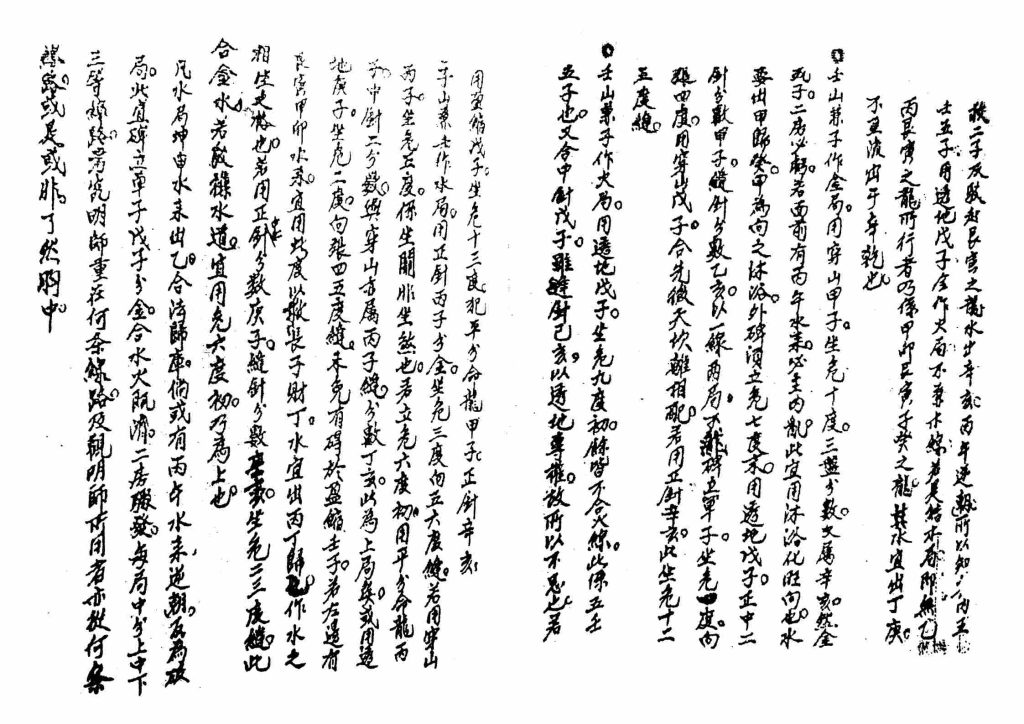 敗二子反敗起艮寅之龍水出辛亥丙午逆朝所以知六內五
壬五子用透地戊子全作火局不兼水線若是結水局即無乙
丙艮寅之龍所行者乃係甲卯艮寅子癸之龍其水宜出丁庚
不宜流出于辛乾也
壬山兼子作金局用穿山甲子坐危十度三盤分數又屬辛亥然金
瓦子二房必弱若面前有丙午水來必主內亂此宜用沐浴化旺向也水
要出甲歸癸甲為向之沐浴外碑須立危七度末用透地戊子正中二
針分數甲子縫針分數乙亥以一線兩局立單子坐危一度向
張四度用穿山戊子合先後天坎離相配若用正針辛亥此坐危十二
五度縫
壬山兼子作火局用透地戊子坐危九度初餘皆不合火線此係五壬
五子也又合中針戊子雖縫針己亥以透地專權故所以不忌也若
用盈縮戊子坐危十三度犯平分命龍甲子正針辛亥
子山兼壬作水局用正針丙子分金坐危三度向五六度縫若用穿山
丙子坐危五度係生關非坐煞也若立危六度初用平分命龍丙
子中針二分數與穿山皆屬丙子縫分數丁亥此為上局矣或用透
地庚子坐危二度向張四五度縫未免有碍於盈縮壬子若左邊有
艮寅甲卯水來宜用此度以救長子財丁水宜出丙丁歸作水之
相生火格也若用正針分數庚子縫針分數坐危二三度縫此
合金水若發操水道宜用危六度初乃為上也
凡水局坤申水來出乙合法歸庫倘或有丙午水來逆朝反為敗
局此宜碑立單子戊子分金合水火既濟二房驟發每局中分上中下
三等線路考究明師重在何条線路及觀明師所用者亦从何条
線路或是或非了然胸中